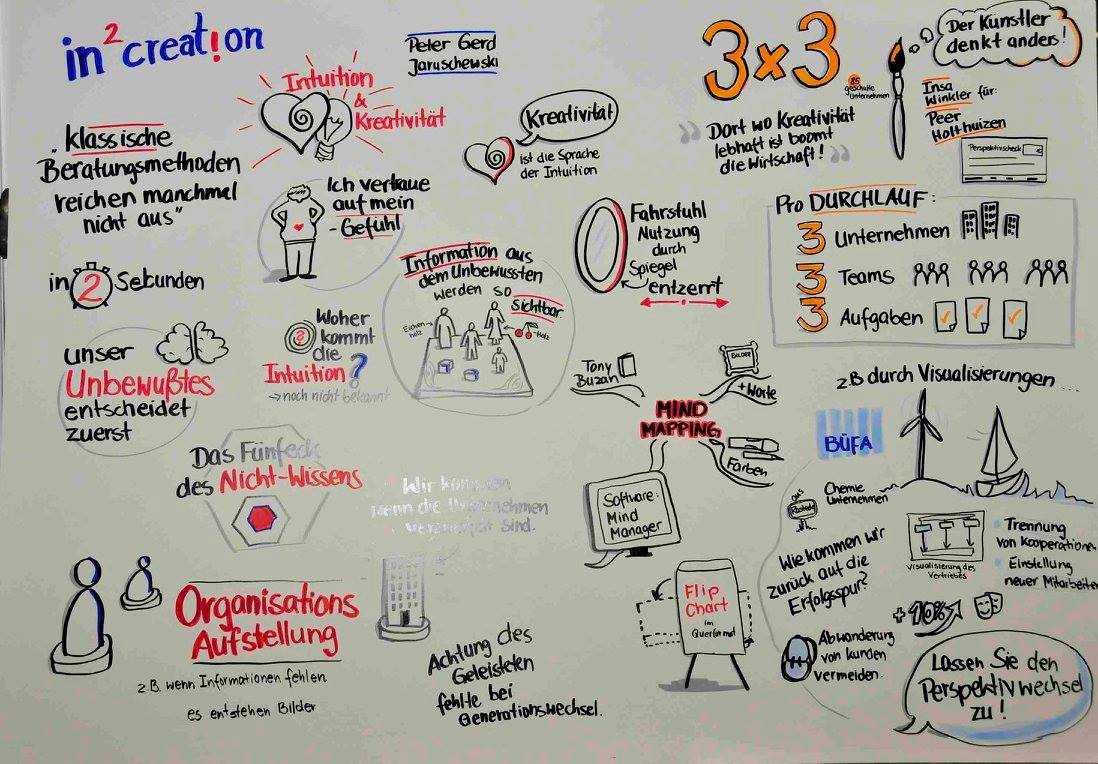 in² creat!on
Peter Gerd
Jaruschewski
Intuition
&
Kreativität
„klassische
Beratungsmethoden
reichen manchmal
nicht aus"
Kreativität
ist die Sprache
der Intuition
Ich vertraue
auf mein
- Gefühl
in 2 Sekunden
Information aus
dem Unbewussten
werden so
Sichtbar
Eichen
holz
-Holz
Fahrstuhl
Nutzung
durch
Spiegel
entzerrt
unser
Unbewußtes
entscheidet
zuerst
Woher
kommt
die
Intuition?
→ noch nicht bekannt
Das Fünfeck
des Nicht-Wissens
Wir kommen
wenn die Unternehmen
verzweifelt sind.
Organisations
Aufstellung
z.B. wenn Informationen fehlen
es entstehen Bilder
Achtung des
Geleisteten
fehlte bei
Generationswechsel.
3x3
85
geschulte
Unternehmen
Der Künstler
denkt anders!
Insa
Winkler für:
Peer
Holthuizen
Perspektivscheck
" Dort wo Kreativität
lebhaft ist boomt
die Wirtschaft! "
Pro DURCHLAUF:
3 Unternehmen
3 Teams
3 Aufgaben
Tony
Buzan
BILDER
+ Worte
MIND
MAPPING
Farben
Software:
Mind
Manager
Flip
Chart
im
Querformat
z.B durch Visualisierungen ...
BÜFA
Chemie
Unternehmen
Wie kommen wir
zurück auf die
Erfolgsspur?
Visualisierung des
Vertriebes
Trennung
von Kooperationen
Einstellung
neuer Mitarbeiter
+10%
Abwanderung
von Kunden
vermeiden.
Lassen Sie den
Perspektivwechsel
zu!